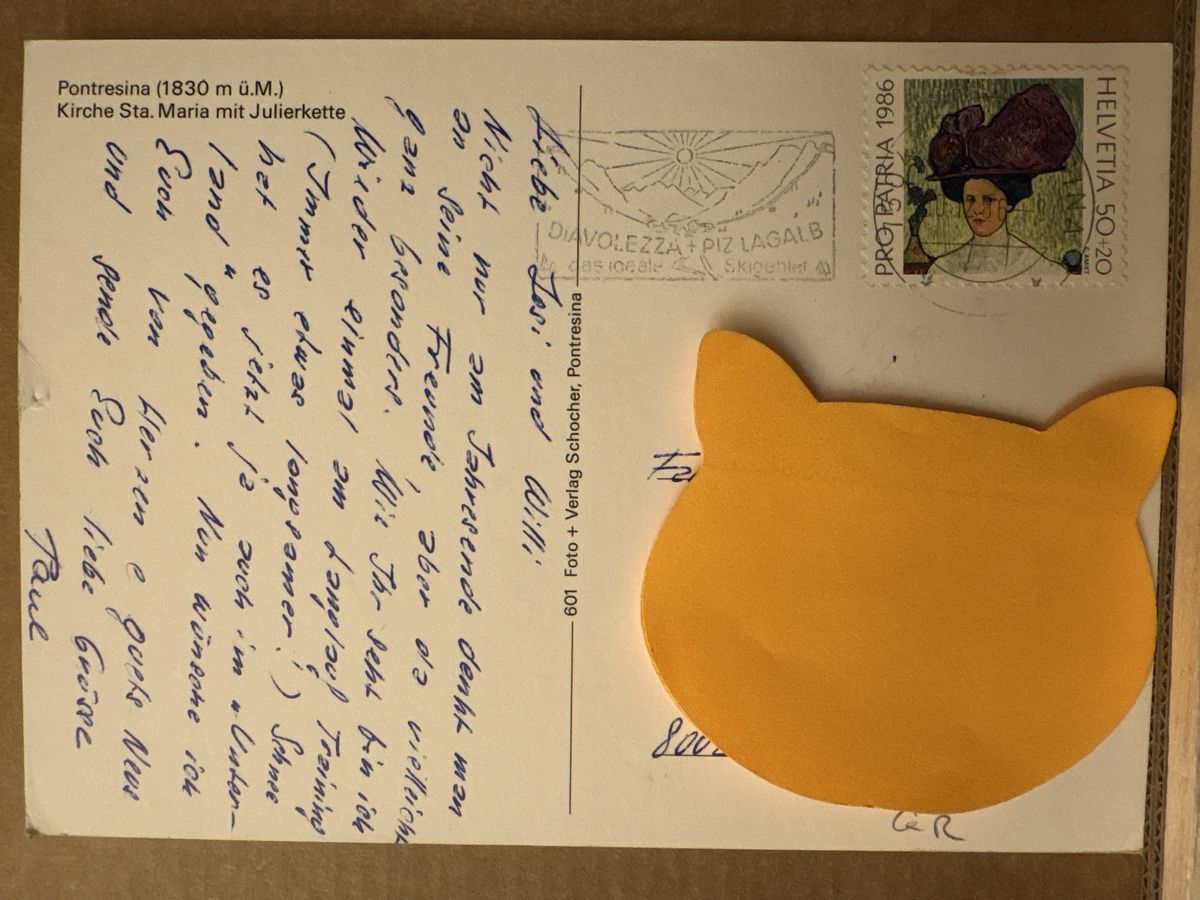 Pontresina (1830 m ü.M.)
Kirche Sta. Maria mit Julierkette
Liebe Josi und Willi
Nicht nur am Jahresende denkt man
an seine Freunde, aber da vielleicht
ganz besonders. Wie Ihr seht bin ich
wieder einmal am Langlauf Training
(Immer etwas langsamer!) Schnee
hat es jetzt ja auch im "Unter-
land" gegeben. Nun wünsche ich
Euch von Herzen e guets Neus
und sende Euch liebe Grüsse
Paul
601 Foto + Verlag Schocher, Pontresina
DIAVOLEZZA + PIZ LAGALB
das ideale Skigebiet
PRO PATRIA 1986
HELVETIA 50+20